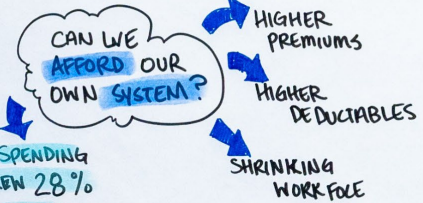 CAN WE
AFFORD OUR
OWN SYSTEM?
HIGHER
PREMIUMS
HIGHER
DEDUCTABLES
SHRINKING
WORK FOLE
SPENDING
EW 28%